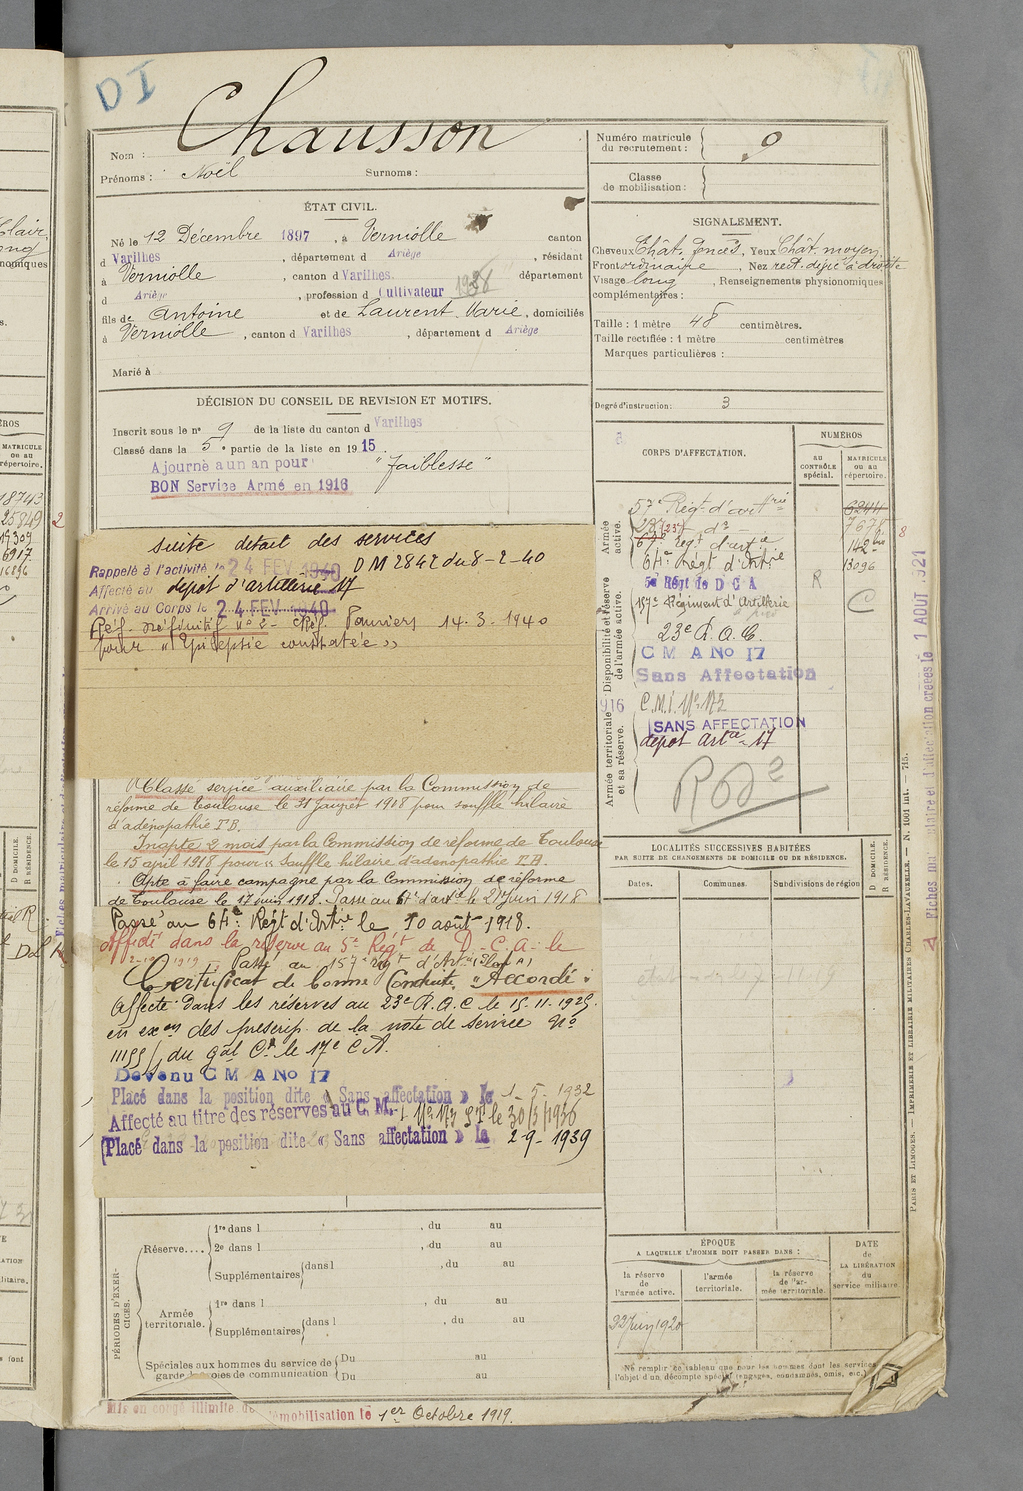 DI
Chausson
Nom :
Prénoms : Noël Surnoms :
Numéro matricule du recrutement : 9
Classe de mobilisation :
ÉTAT CIVIL.
Né le 12 Décembre 1897, à Verniolle canton
d Varilhes, département d Ariège, résidant
à Verniolle, canton d Varilhes. département
d Ariège, profession d Cultivateur
fils de Antoine et de Laurent Marie, domiciliés
à Verniolle, canton d Varilhes, département d Ariège
Marié à
SIGNALEMENT.
Cheveux Chât. foncés, Yeux Chât. moyen
Front ordinaire, Nez rect. dévié à droite
Visage long, Renseignements physionomiques
complémentaires :
Taille : 1 mètre 48 centimètres.
Taille rectifiée : 1 mètre centimètres
Marques particulières :
Degré d'instruction : 3
DÉCISION DU CONSEIL DE REVISION ET MOTIFS.
Inscrit sous le nº 9 de la liste du canton d Varilhes
Classé dans la 5e partie de la liste en 1915
Ajourné a un an pour "faiblesse"
BON Service Armé en 1916
suite détail des services
Rappelé à l'activité le 24 FEV 1940 DM 2842 du 8-2-40
Affecté au dépôt d'artillerie 17
Arrivé au Corps le 24 FEV 1940
Réf. définitif nº 2 - Réf. Pamiers 14.3.1940
pour « Epilepsie constatée »
Classé service auxiliaire par la Commission de
réforme de Toulouse le 31 Janvier 1918 pour souffle hilaire
d'adénopathie T.B.
Inapte 2 mois par la Commission de réforme de Toulouse
le 15 avril 1918 pour « Souffle hilaire d'adénopathie T.B.
Apte à faire campagne par la Commission de réforme
de Toulouse le 17 juin 1918. Passé au 61e d'artie le 21 Juin 1918
Passé au 64e Régt d'Artrie le 10 août 1918.
Affecté dans la réserve au 5e Régt de D.C.A. le
Passé au 157e régt d'Artie
Certificat de bonne Conduite "Accordé"
Affecté dans les réserves au 23e R.A.C. le 15.11.1925.
en exon des prescrip. de la note de service Nº
du gal Ct le 17e C.A.
Devenu C M A No 17
Placé dans la position dite « Sans affectation » le 1-5-1932
Affecté au titre des réserves au C.M.I. Nº 173 le 30/3/1936
Placé dans la position dite « Sans affectation » le 2-9-1939
CORPS D'AFFECTATION.
NUMÉROS
AU CONTRÔLE spécial.
MATRICULE ou au répertoire.
Armée active.
57e Régt d'artrie 6244
61e Régt d'artie
64e Régt d'Artrie 13096
Disponibilité et réserve de l'armée active.
5e Régt de D C A R
157e Régiment d'Artillerie
23e R.A.C.
C M A No 17
Sans Affectation
Armée territoriale et sa réserve.
C.M.I. Nº 173
SANS AFFECTATION
dépôt Artie 17
LOCALITÉS SUCCESSIVES HABITÉES
PAR SUITE DE CHANGEMENTS DE DOMICILE OU DE RÉSIDENCE.
Dates. Communes. Subdivisions de région
D DOMICILE.
R RÉSIDENCE.
PÉRIODES D'EXERCICES.
Réserve....
1re dans l , du au
2e dans l , du au
Supplémentaires dans l , du au
Armée territoriale.
1re dans l , du au
Supplémentaires dans l , du au
Spéciales aux hommes du service de garde des voies de communication
Du au
Du au
ÉPOQUE
A LAQUELLE L'HOMME DOIT PASSER DANS :
la réserve de l'armée active.
l'armée territoriale.
la réserve de l'armée territoriale.
DATE de LA LIBÉRATION du service militaire.
22 Juin 1920
Ne remplir ce tableau que pour les hommes dont les services
l'objet d'un décompte spécial (engagés, condamnés, omis, etc.)
Mis en congé illimité de démobilisation le 1er Octobre 1919.
PARIS ET LIMOGES. — IMPRIMERIE ET LIBRAIRIE MILITAIRES CHARLES-LAVAUZELLE. — N. 1001 int. — 715.